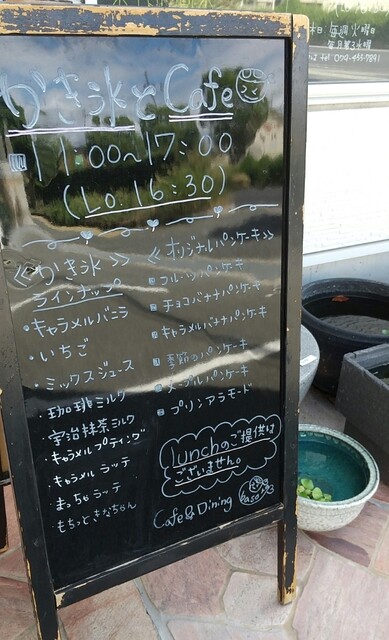 毎週火曜日
毎月第3水曜
かき氷とCafe
11:00~17:00
(Lo. 16:30)
《かき氷》
ラインナップ
・キャラメルバニラ
・いちご
・ミックスジュース
・珈琲ミルク
・宇治抹茶ミルク
・キャラメルプディング
・キャラメルラッテ
・まっちゃラッテ
・もちっときなちゃん
《オリジナルパンケーキ》
フルーツパンケーキ
チョコバナナパンケーキ
キャラメルバナナパンケーキ
季節のパンケーキ
メープルパンケーキ
プリンアラモード
lunchのご提供は
ございません。
Cafe&Dining